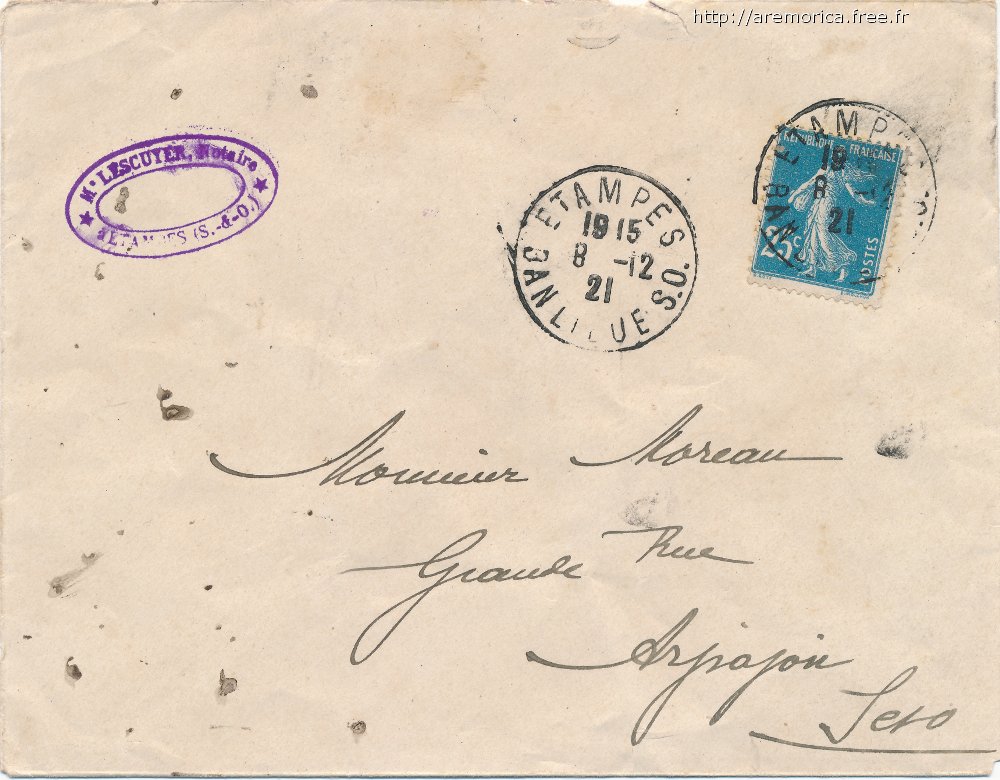 http://aremorica.free.fr
Me LESCUYER, Notaire
à ETAMPES (S.-&-O.)
ETAMPES
1915
8 -12
21
BANLIEUE S.O.
ETAMPES
REPUBLIQUE FRANÇAISE
19
8 -12
21
25c
POSTES
Monsieur Moreau
Grande Rue
Arpajon
Seto